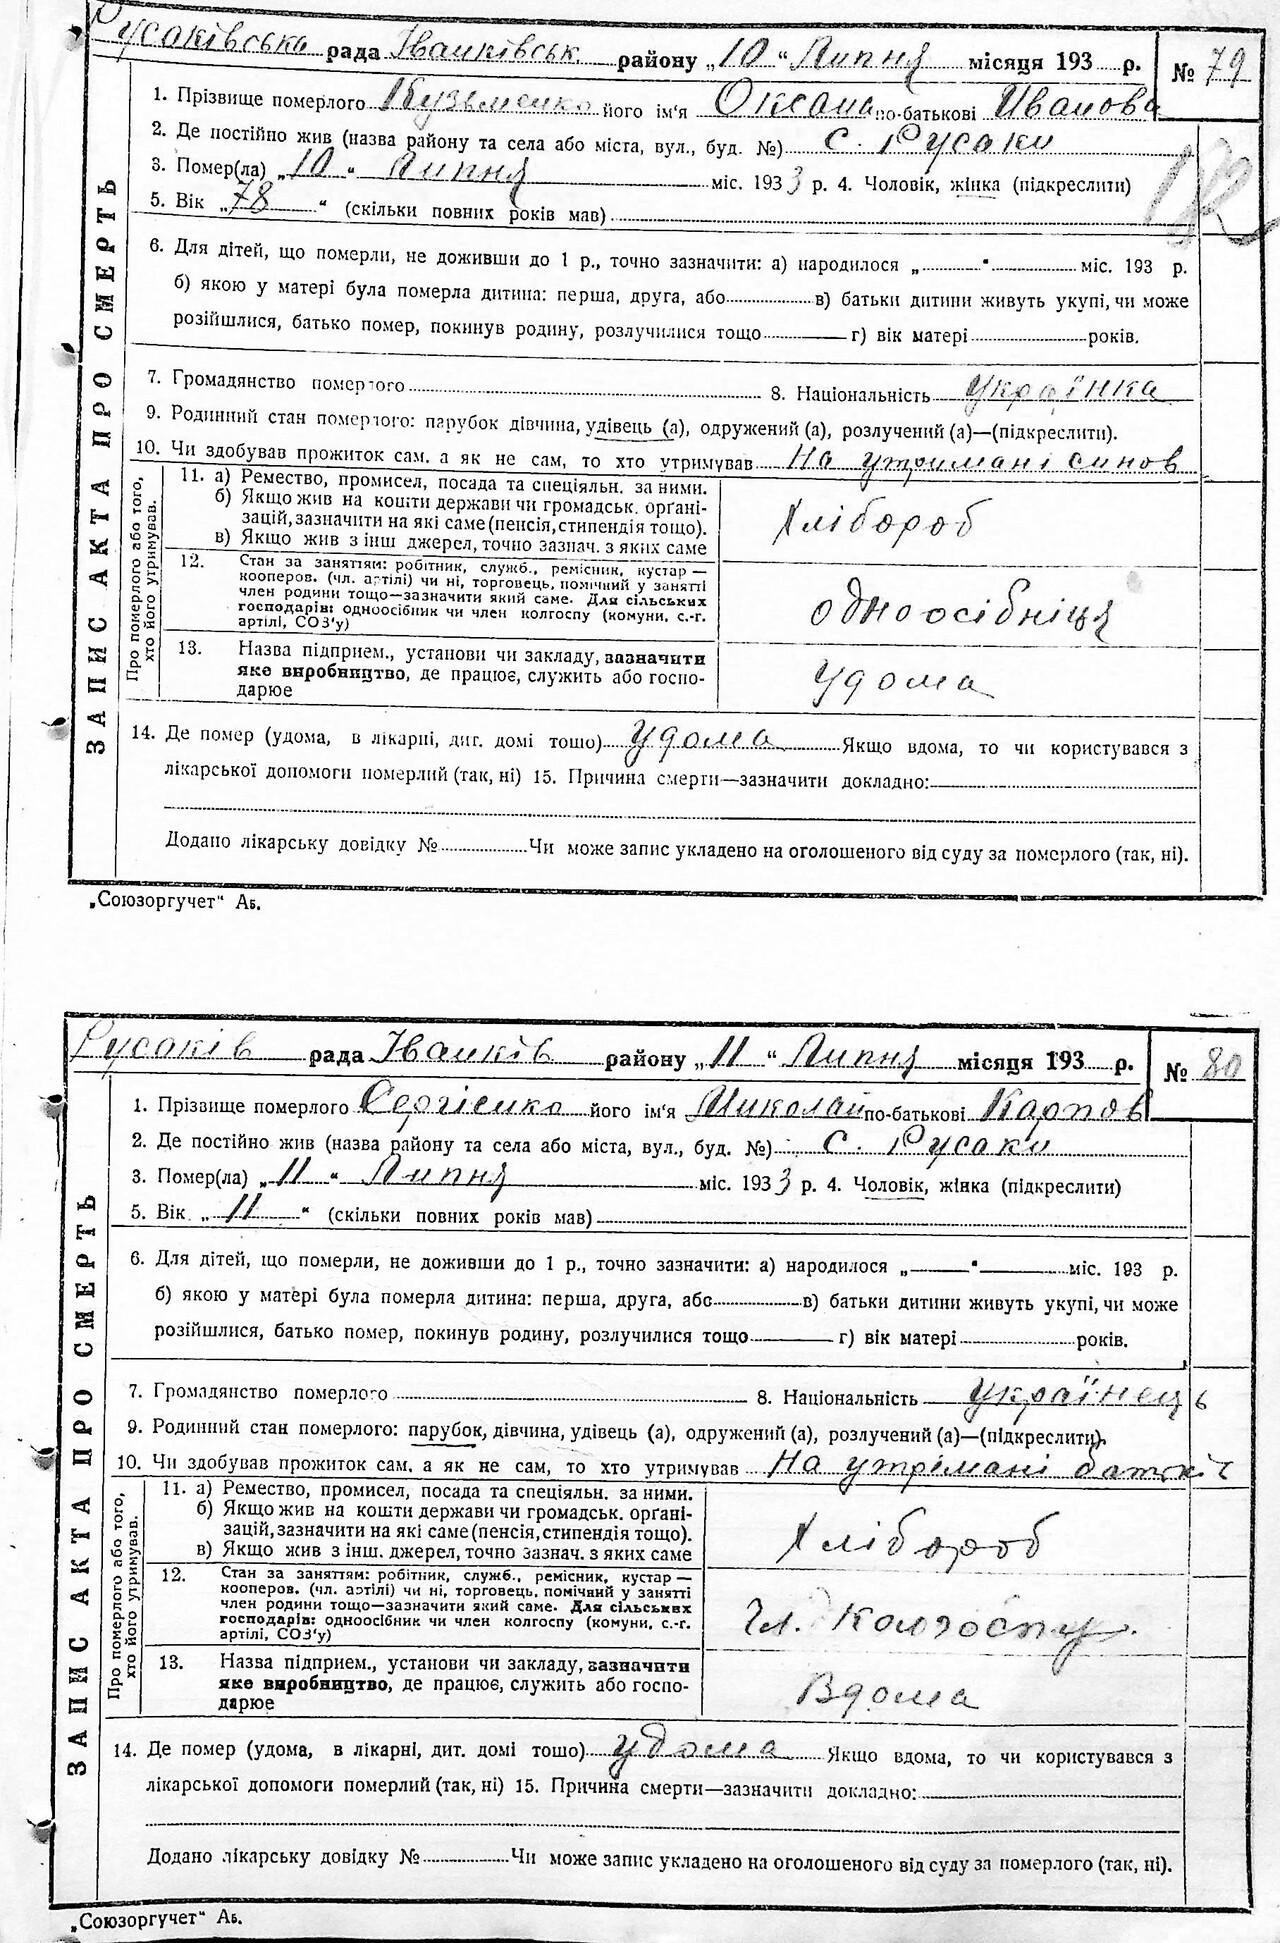 Русаківська рада Іванківськ. району „10“ Липня місяця 193 р. № 79
1. Прізвище померлого Кузьменко його ім'я Оксана по-батькові Иванова
2. Де постійно жив (назва району та села або міста, вул., буд. №) с. Русаки
3. Помер(ла) „10“ Липня міс. 1933 р. 4. Чоловік, жінка (підкреслити)
5. Вік „78“ (скільки повних років мав)
6. Для дітей, що померли, не доживши до 1 р., точно зазначити: а) народилося „ “ міс. 193 р.
б) якою у матері була померла дитина: перша, друга, або в) батьки дитини живуть укупі, чи може
розійшлися, батько помер, покинув родину, розлучилися тощо г) вік матері років.
7. Громадянство померлого 8. Національність українка
9. Родинний стан померлого: парубок дівчина, удівець (а), одружений (а), розлучений (а)—(підкреслити).
10. Чи здобував прожиток сам. а як не сам, то хто утримував На утримані синов
11. а) Ремество, промисел, посада та спеціяльн. за ними.
б) Якщо жив на кошти держави чи громадськ. органі-
зацій, зазначити на які саме (пенсія, стипендія тощо).
в) Якщо жив з інш джерел, точно зазнач. з яких саме
Хлібороб
12. Стан за заняттям: робітник, служб., ремісник, кустар —
кооперов. (чл. артілі) чи ні, торговець, помічний у занятті
член родини тощо—зазначити який саме. Для сільських
господарів: одноосібник чи член колгоспу (комуни, с.-г.
артілі, СОЗ'у)
одноосібніця
13. Назва підприєм., установи чи закладу, зазначити
яке виробництво, де працює, служить або госпо-
дарює
удома
14. Де помер (удома, в лікарні, дит. домі тощо) удома Якщо вдома, то чи користувався з
лікарської допомоги померлий (так, ні) 15. Причина смерти—зазначити докладно:
Додано лікарську довідку № Чи може запис укладено на оголошеного від суду за померлого (так, ні).
ЗАПИС АКТА ПРО СМЕРТЬ
Про померлого або того,
хто його утримував.
„Союзоргучет“ Аб.
Русаків рада Іванків району „11“ Липня місяця 193 р. № 80
1. Прізвище померлого Сергієнко його ім'я Миколай по-батькові Карпов
2. Де постійно жив (назва району та села або міста, вул., буд. №) с. Русаки
3. Помер(ла) „11“ Липня міс. 1933 р. 4. Чоловік, жінка (підкреслити)
5. Вік „11“ (скільки повних років мав)
6. Для дітей, що померли, не доживши до 1 р., точно зазначити: а) народилося „ “ міс. 193 р.
б) якою у матері була померла дитина: перша, друга, або в) батьки дитини живуть укупі, чи може
розійшлися, батько помер, покинув родину, розлучилися тощо г) вік матері років.
7. Громадянство померлого 8. Національність українець
9. Родинний стан померлого: парубок, дівчина, удівець (а), одружений (а), розлучений (а)—(підкреслити).
10. Чи здобував прожиток сам. а як не сам, то хто утримував На утрімані батьків
11. а) Ремество, промисел, посада та спеціяльн. за ними.
б) Якщо жив на кошти держави чи громадськ. органі-
зацій, зазначити на які саме (пенсія, стипендія тощо).
в) Якщо жив з інш. джерел, точно зазнач. з яких саме
Хлібороб
12. Стан за заняттям: робітник, служб., ремісник, кустар —
кооперов. (чл. артілі) чи ні, торговець, помічний у занятті
член родини тощо—зазначити який саме. Для сільських
господарів: одноосібник чи член колгоспу (комуни, с.-г.
артілі, СОЗ'у)
чл. колгоспу.
13. Назва підприєм., установи чи закладу, зазначити
яке виробництво, де працює, служить або госпо-
дарює
Вдома
14. Де помер (удома, в лікарні, дит. домі тощо) удома Якщо вдома, то чи користувався з
лікарської допомоги померлий (так, ні) 15. Причина смерти—зазначити докладно:
Додано лікарську довідку № Чи може запис укладено на оголошеного від суду за померлого (так, ні).
ЗАПИС АКТА ПРО СМЕРТЬ
Про померлого або того,
хто його утримував.
„Союзоргучет“ Аб.